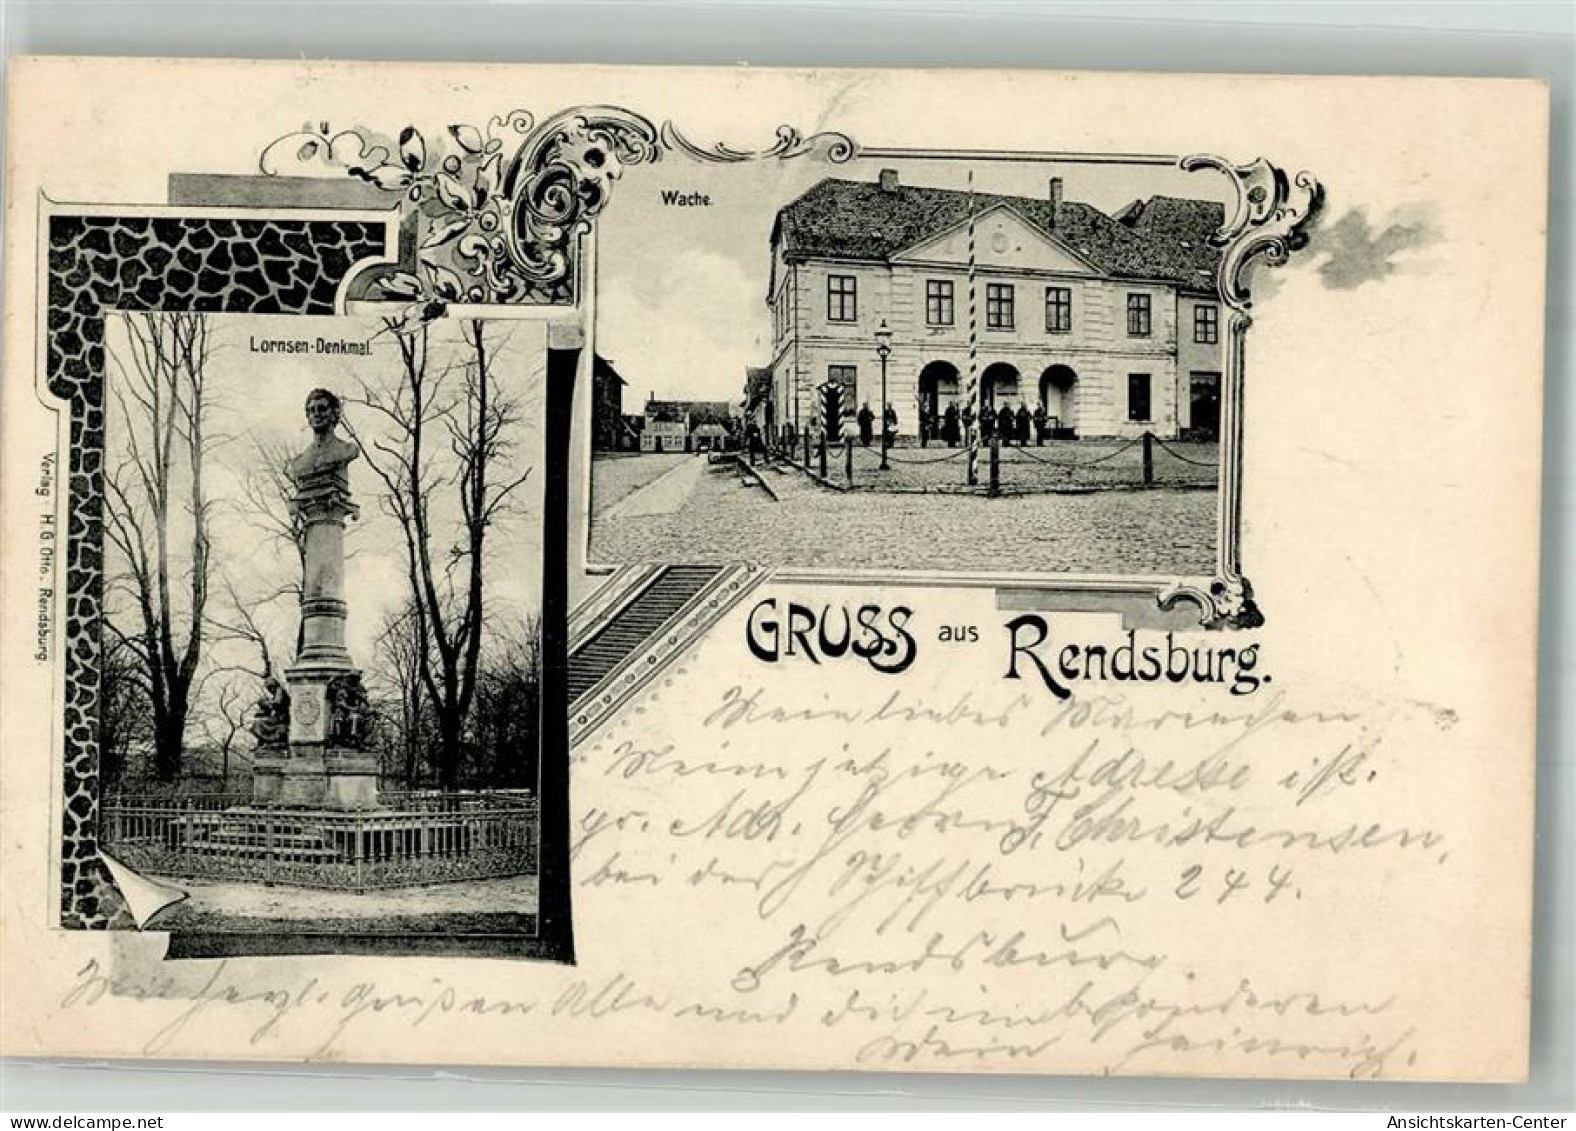 Wache.
Lornsen-Denkmal.
Verlag H. G. Otto, Rendsburg.
GRUSS aus Rendsburg.
Mein liebes Mariechen
Meine jetzige Adresse ist.
pr. Adr. Herrn F. Christensen,
bei der Schiffbrücke 244.
Rendsburg.
Mit herzl. Grüßen Alle und dich im besonderen
Dein Heinrich.
Ansichtskarten-Center